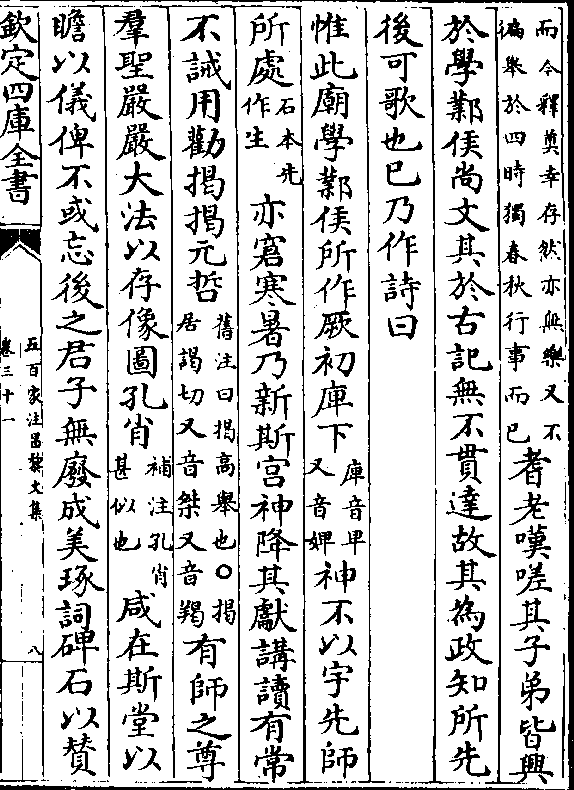 而今釋奠幸存然亦無樂又不
徧舉於四時獨春秋行事而已
耆老嘆嗟其子弟皆興
於學鄴侯尚文其於古記無不貫達故其為政知所先
後可歌也已乃作詩曰
惟此廟學鄴侯所作厥初庳下
庳音卑
又音婢
神不以宇先師
所處
石本先
作生
亦窘寒暑乃新斯宫神降其獻講讀有常
不誡用勸揭揭元哲
舊注曰揭高舉也○揭
居謁切又音桀又音羯
有師之尊
羣聖嚴嚴大法以存像圖孔肖
補注孔肖
甚似也
咸在斯堂以
瞻以儀俾不或忘後之君子無廢成美琢詞碑石以賛
欽定四庫全書
五百家注昌黎文集
卷三十一
八